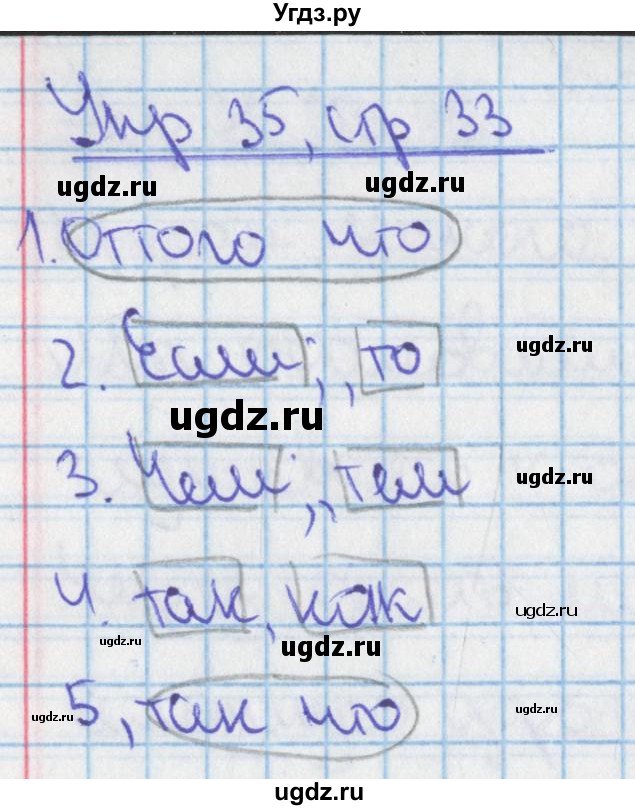 Угдз.ру
Упр 35, стр 33
ugdz.ru ugdz.ru
1. Оттого что
2. Если, , то ugdz.ru
ugdz.ru
3. Чем, , тем ugdz.ru
4. так, как ugdz.ru
ugdz.ru ugdz.ru
ugdz.ru 5, так что ugdz.ru
ugdz.ru